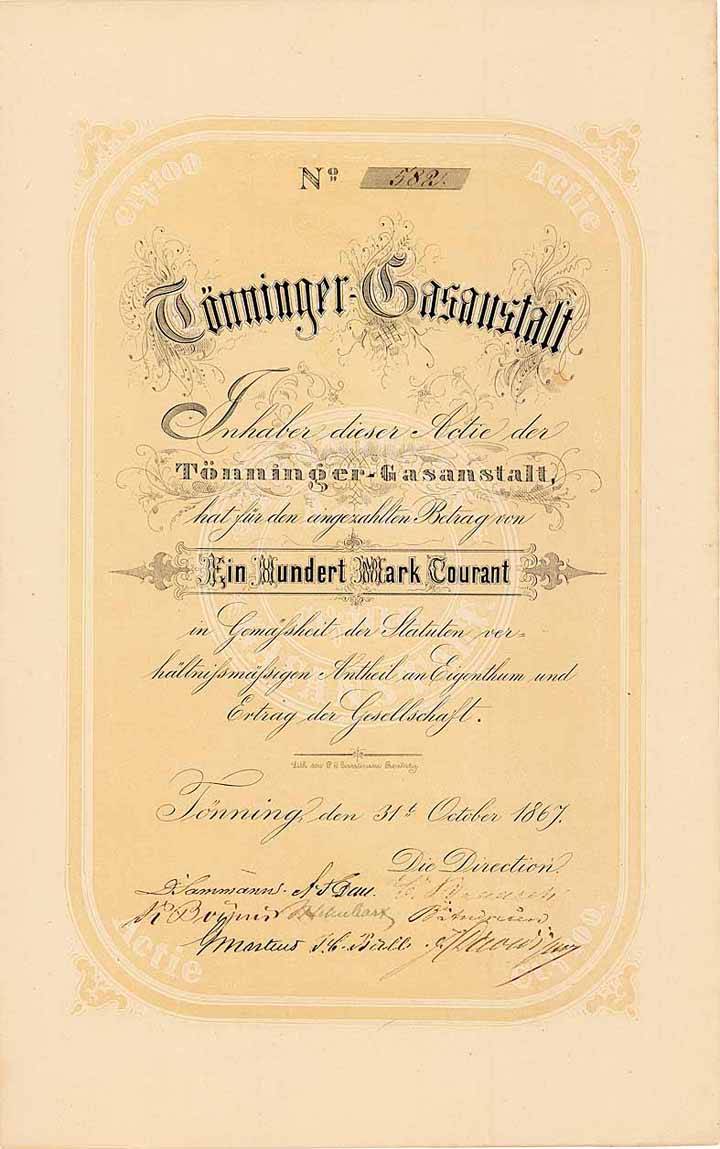 No 582.
Crt# 100 Actie
Tönninger-Gasanstalt
Inhaber dieser Actie der
Tönninger-Gasanstalt,
hat für den angezahlten Betrag von
Ein Hundert Mark Courant
in Gemäſsheit der Statuten ver=
hältniſsmäſsigen Antheil an Eigenthum und
Ertrag der Gesellschaft.
Lith. von
Tönning, den 31t October 1867.
Die Direction.
Martens
Actie 100